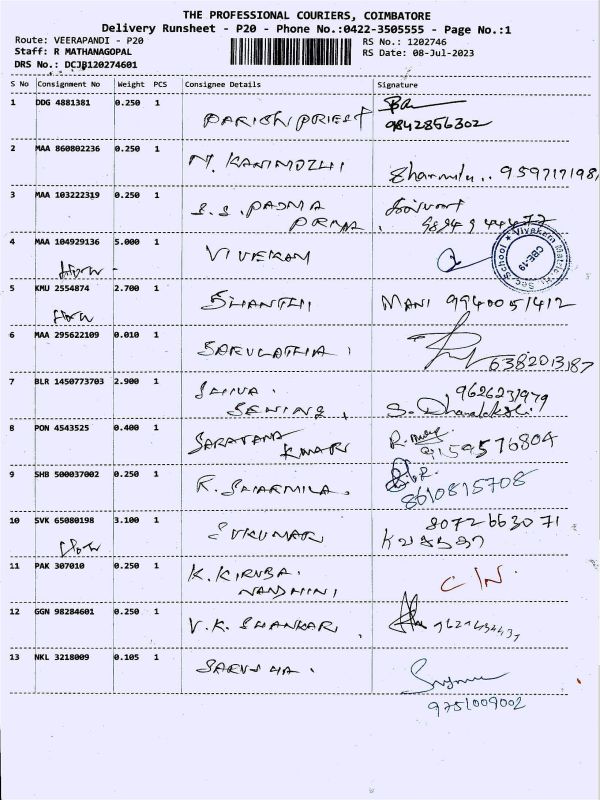 THE PROFESSIONAL COURIERS, COIMBATORE
Delivery Runsheet - P20 - Phone No.:0422-3505555 - Page No.:1
Route: VEERAPANDI - P20 RS No.: 1202746
Staff: R MATHANAGOPAL RS Date: 08-Jul-2023
DRS No.: DCJB120274601
S No Consignment No Weight PCS Consignee Details Signature
1 DDG 4881381 0.250 1 PARISH PRIEST
9842856302
2 MAA 860802236 0.250 1 N. KANIMOZHI
Sharmila.. 9597171981
3 MAA 103222319 0.250 1 S.S. PADMA
PRIYA.
4 MAA 104929136 5.000 1 VIVEKAM
Vivekam Matric Hr. Sec School
CBE-19
5 KMU 2554874 2.700 1 SHANTHI MANI 9940051412
6 MAA 295622109 0.010 1 SARULATHA. 6382013187
7 BLR 1450773703 2.900 1 SHIVA 9626231979
SEWING. S. Dhanalakshmi
8 PON 4543525 0.400 1 SARAVANA
KUMAR 9159576804
9 SHB 500037002 0.250 1 R. SHARMILA.
8610815708
10 SVK 65080198 3.100 1 SUKUMAR 8072663071
11 PAK 307010 0.250 1 K. KIRUBA.
NANDHINI
12 GGN 98284601 0.250 1 V.K. SHANKAR.
13 NKL 3218009 0.105 1
9751009002